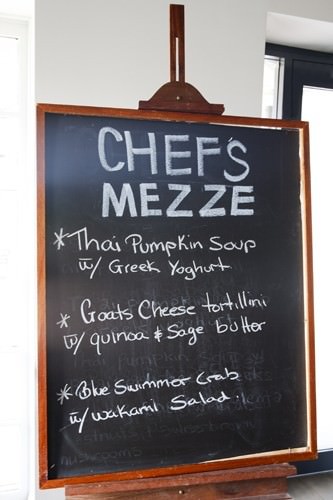 CHEF'S
MEZZE
* Thai Pumpkin Soup
w/ Greek Yoghurt
* Goats Cheese tortillini
w/ quinoa & Sage butter
* Blue Swimmer Crab
w/ wakami Salad.